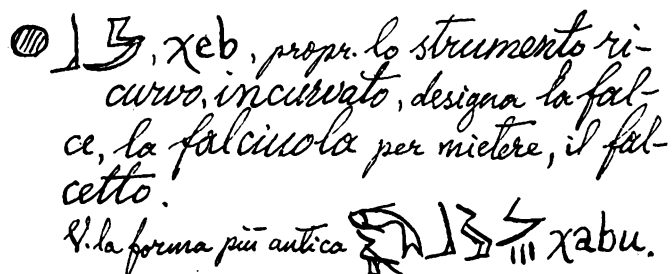 𓐍𓃀, χeb, propr. lo strumento ri-
curvo, incurvato, designa la fal-
ce, la falciuola per mietere, il fal-
cetto.
V. la forma più antica χabu.